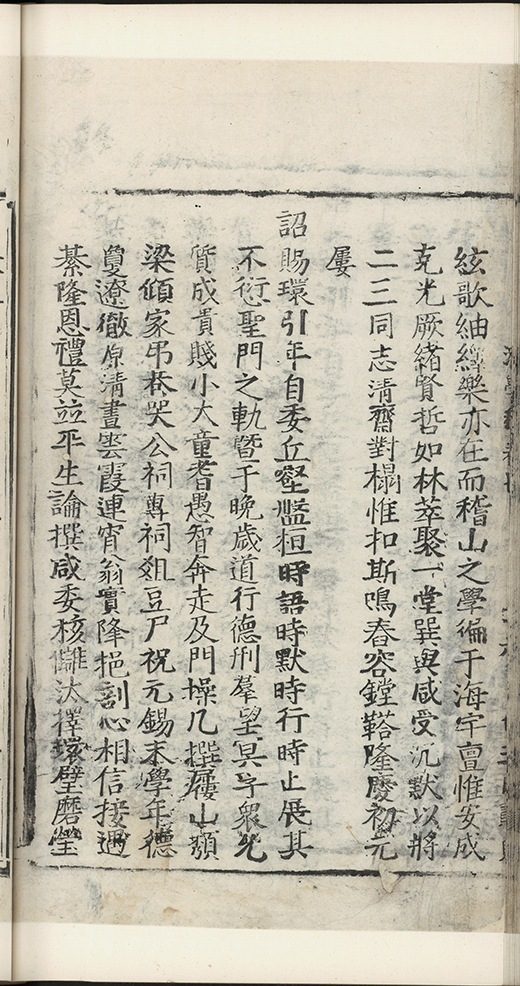 絃歌紬繹樂亦在而稽山之學徧于海宇亶惟安成
克光厥緒賢哲如林萃聚一堂巽與咸受沉默以將
二三同志清齋對榻惟扣斯鳴舂容鏜鞳隆慶初元
屢
詔賜環引年自委丘壑盤桓時語時默時行時止展其
不愆聖門之軌暨于晚歲道行德刑羣望冥孚衆允
質成貴賤小大童耆愚智奔走及門操几撰屨山頹
梁傾家弔巷哭公祠專祠俎豆尸祝元錫末學年德
敻遼徹原清晝雲霞連宵翁實降挹剖心相信接遇
綦隆恩禮莫並平生論撰咸委核讎汰擇瑕璧磨瑩